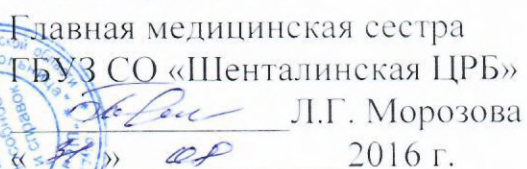 Главная медицинская сестра
ГБУЗ СО «Шенталинская ЦРБ»
Л.Г. Морозова
« 31 » 08 2016 г.